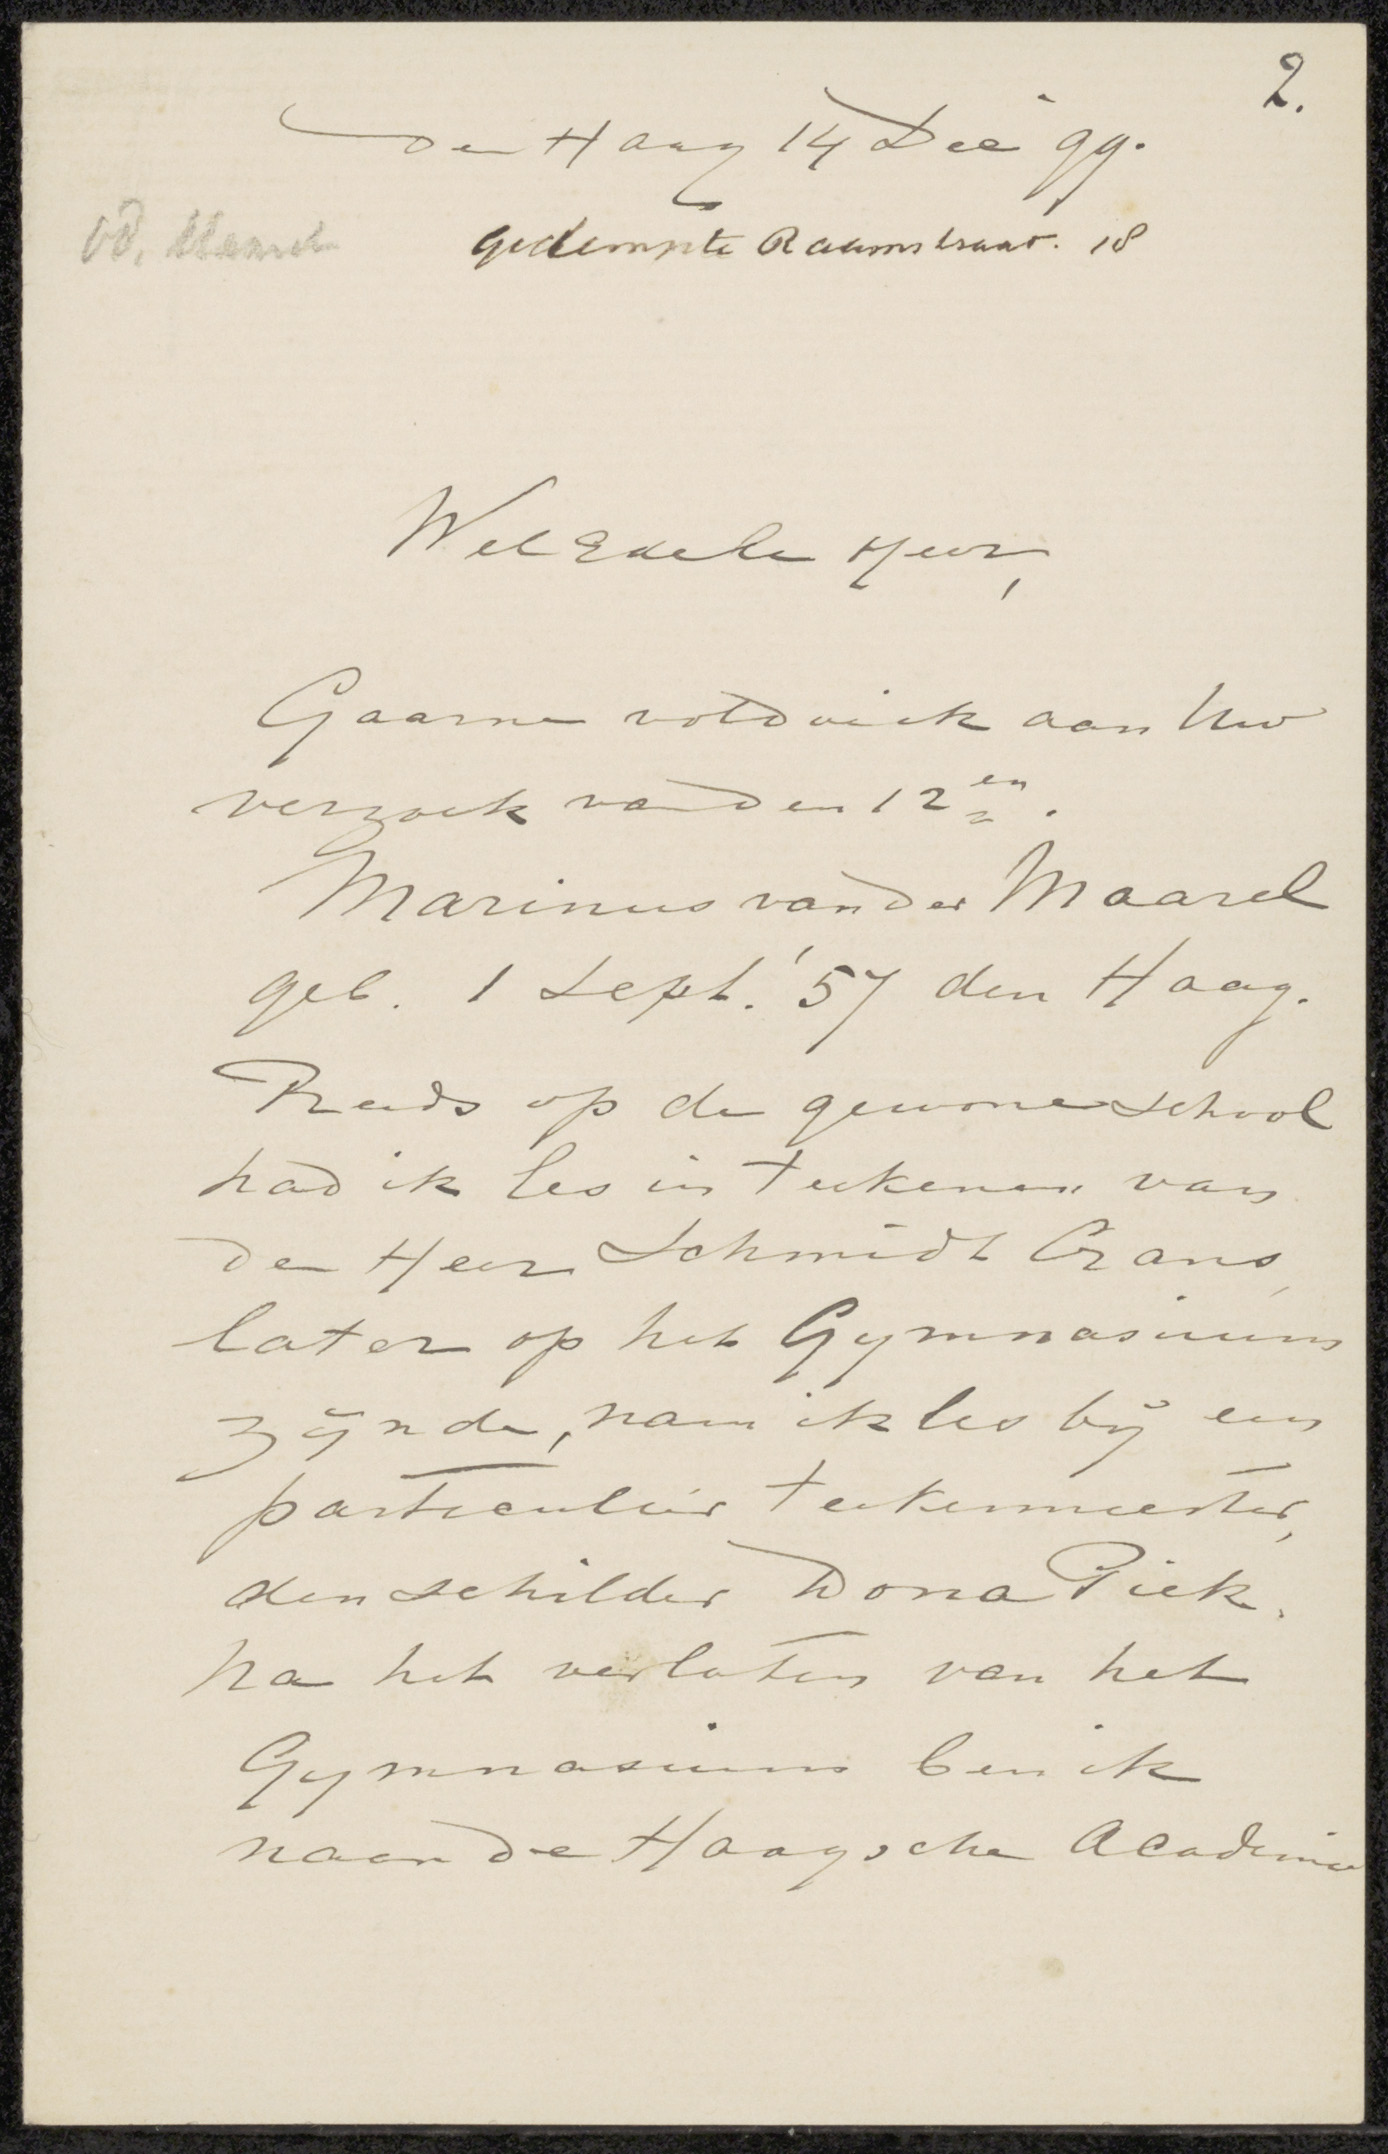 2.
Den Haag 14 Dec '99.
vd. Maarel
Gedempte Raamstraat. 18
WelEdele Heer,
Gaarne voldoe ik aan Uw
verzoek van den 12en.
Marinus van der Maarel
geb. 1 Sept. '57 den Haag.
Reeds op de gewone school
had ik les in teekenen van
den Heer Schmidt Crans,
later op het Gymnasium
zijnde, nam ik les bij een
particulier teekenmeester,
den schilder Dona Piek.
Na het verlaten van het
Gymnasium ben ik
naar de Haagsche Academie